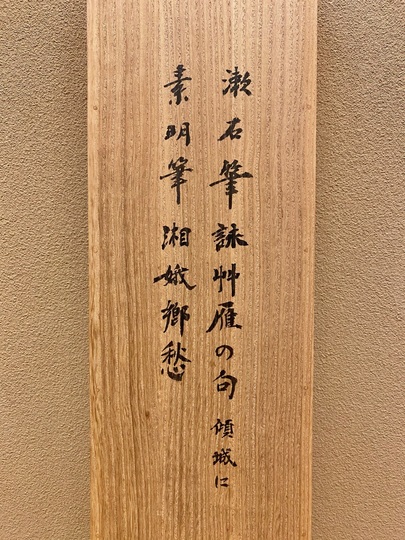 漱石筆詠艸雁の句 傾城に
素明筆 湘娥郷愁